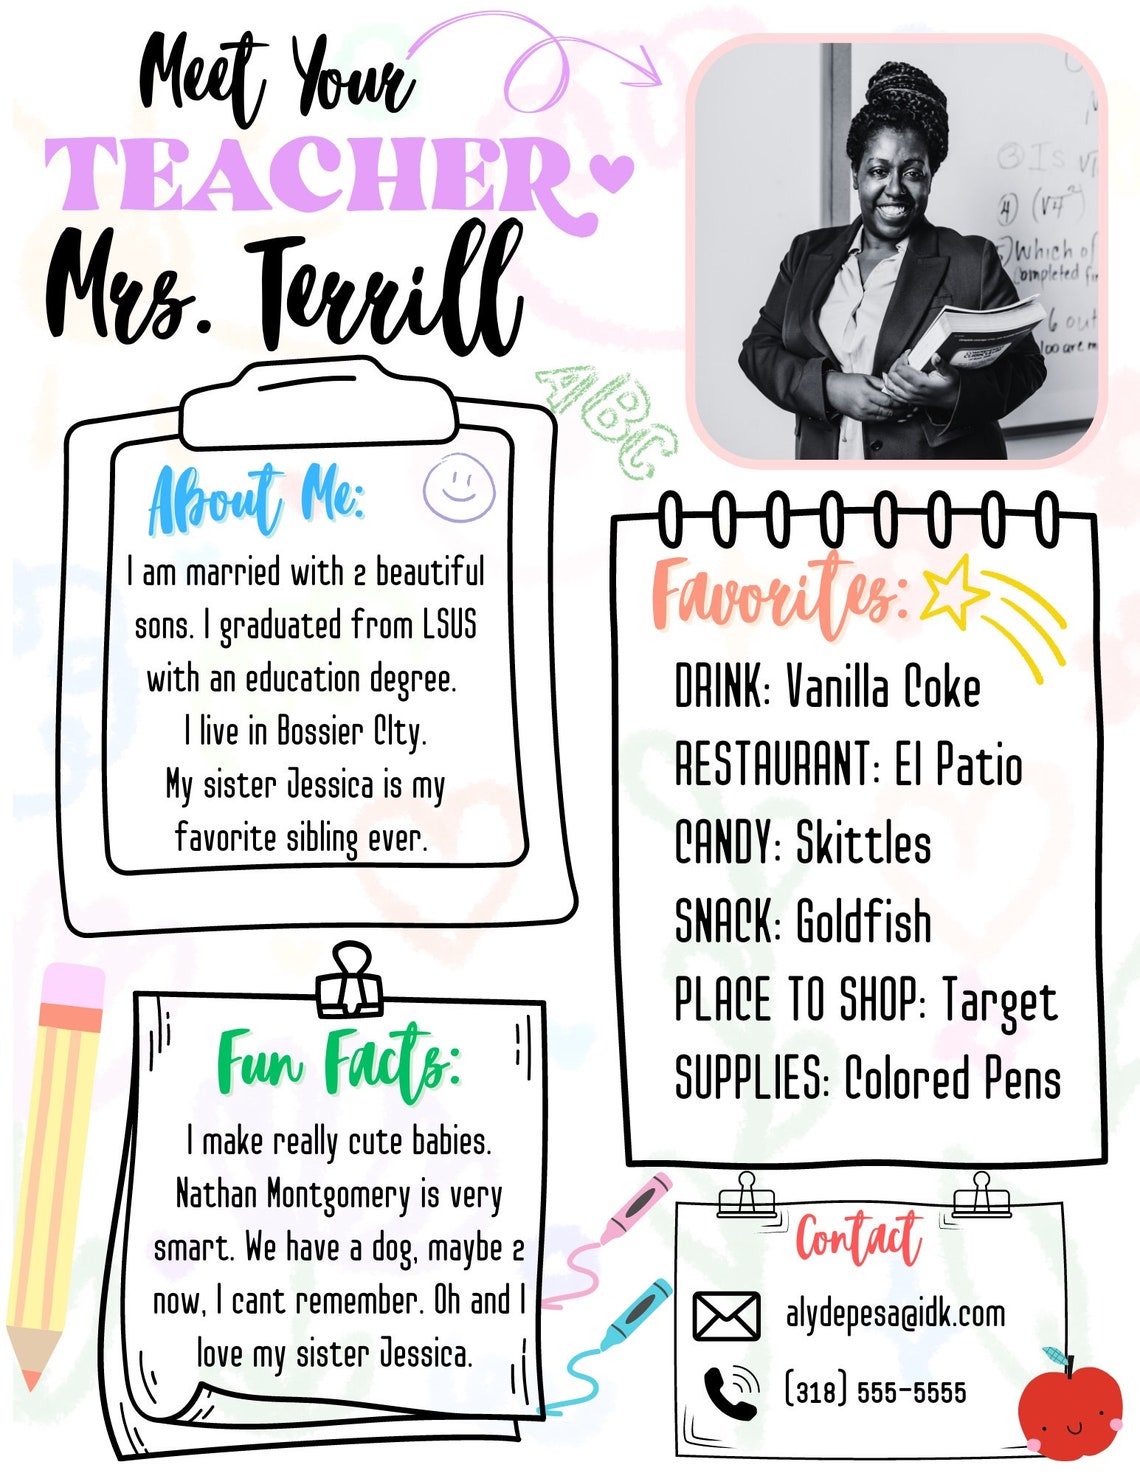 Meet Your
TEACHER
Mrs. Terrill
ABC
About Me:
I am married with 2 beautiful
sons. I graduated from LSUS
with an education degree.
I live in Bossier CIty.
My sister Jessica is my
favorite sibling ever.
Favorites:
DRINK: Vanilla Coke
RESTAURANT: El Patio
CANDY: Skittles
SNACK: Goldfish
PLACE TO SHOP: Target
SUPPLIES: Colored Pens
Fun Facts:
I make really cute babies.
Nathan Montgomery is very
smart. We have a dog, maybe 2
now, I cant remember. Oh and I
love my sister Jessica.
Contact
alydepesa@idk.com
(318) 555-5555
③ Is
④ (√4²)
Which of
Completed
6 out
100 are